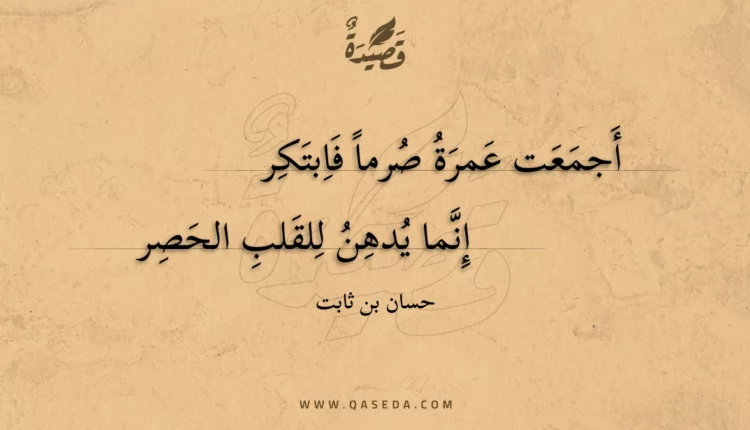 قَصِيْدَةٌ
أَجمَعَت عَمرَةُ صُرماً فَاِبتَكِر
إِنَّما يُدهِنُ لِلقَلبِ الحَصِر
حسان بن ثابت
WWW.QASEDA.COM